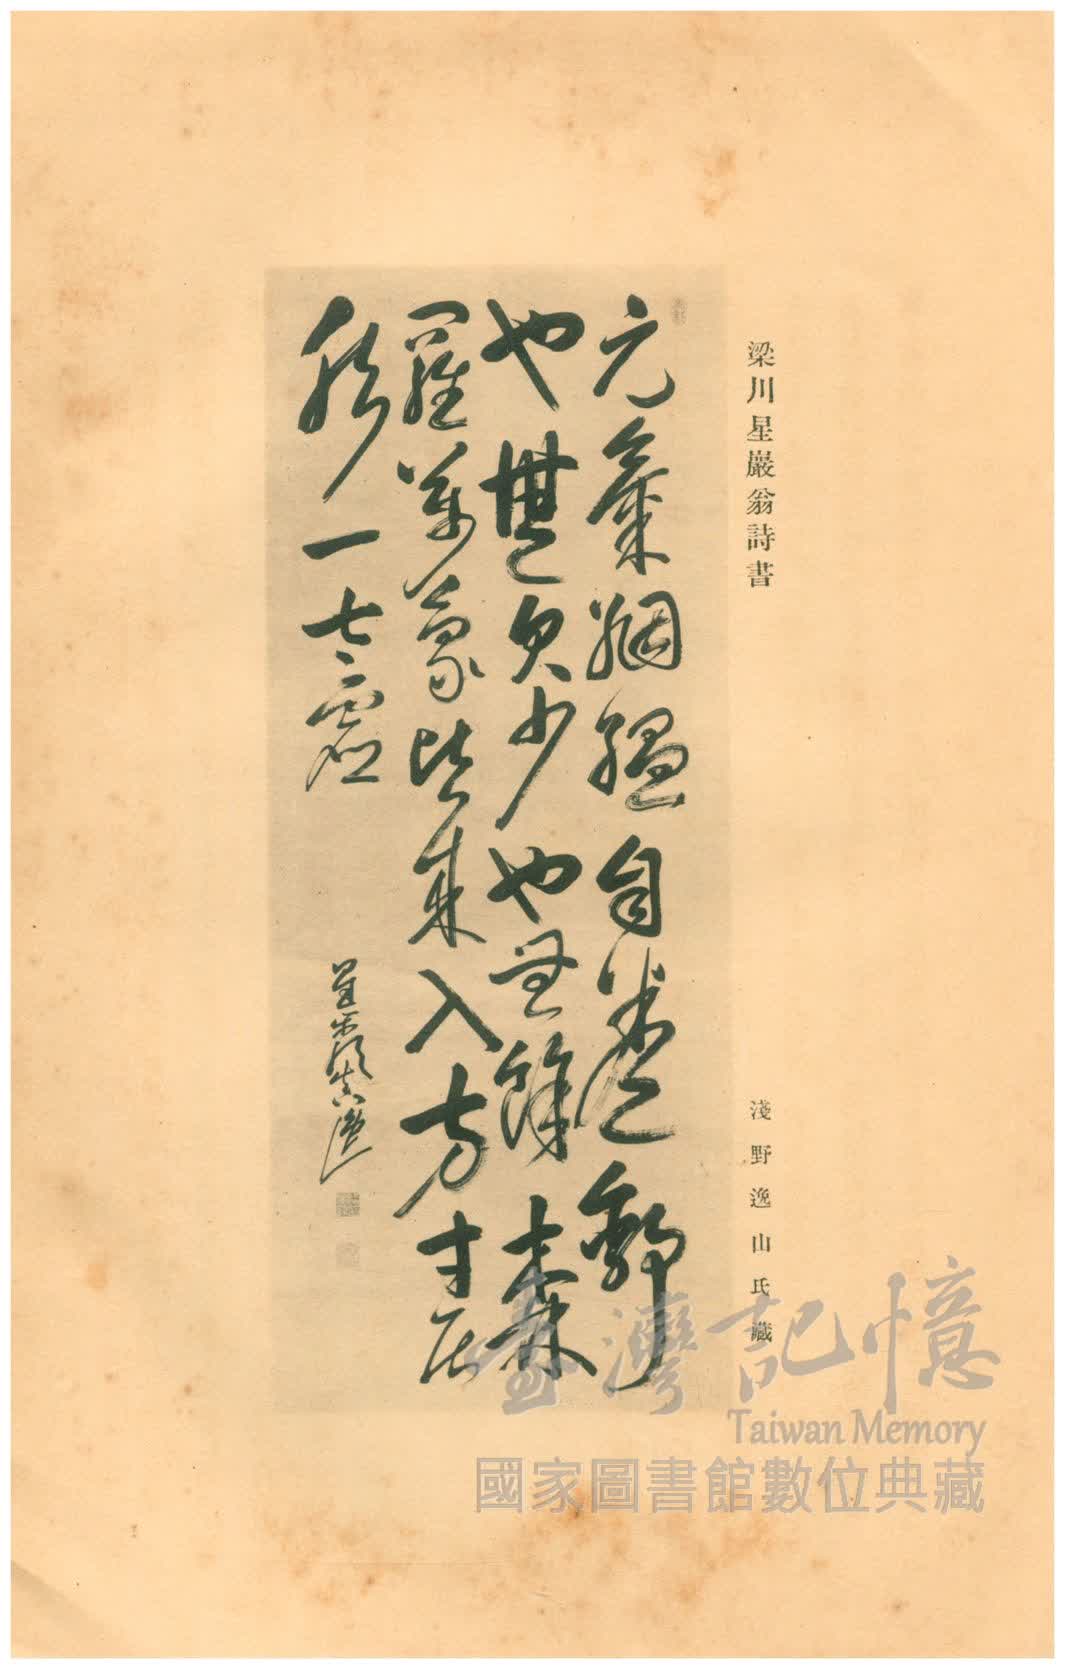 梁川星巖翁詩書
淺野逸山氏藏
元氣絪縕自卷舒
也無欠少也無餘森
羅萬象皆來入方寸居
然一太虛
星巖
臺灣記憶
Taiwan Memory
國家圖書館數位典藏